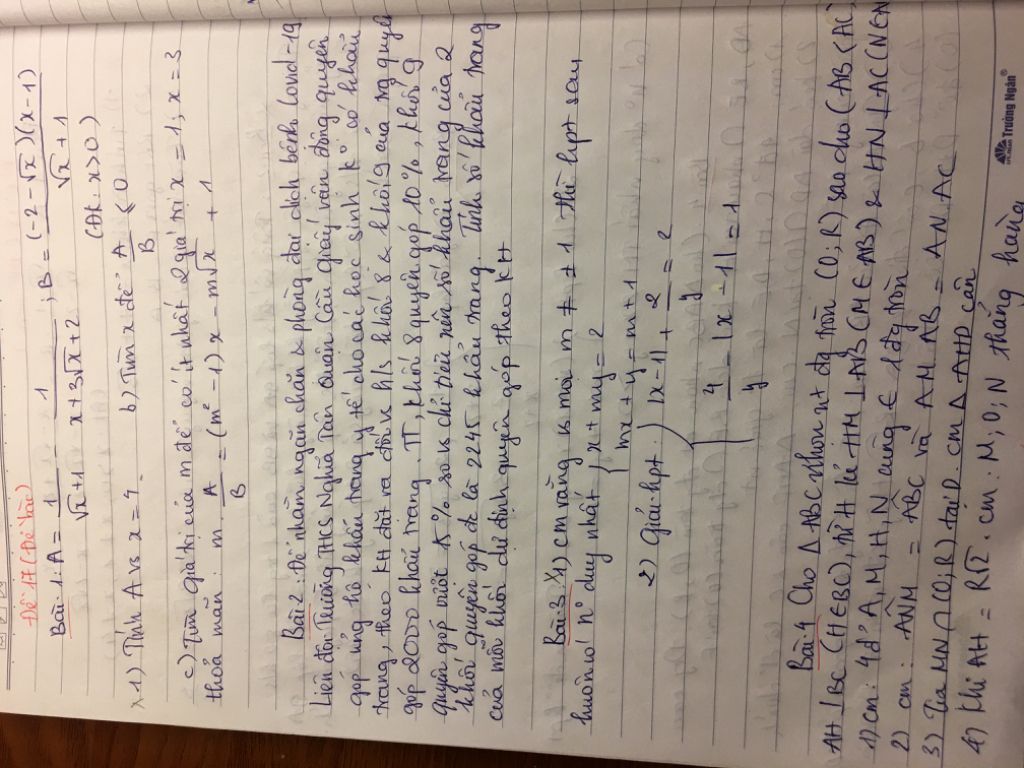 Đề 14 (Đề Vàc)
Bài 1: A = 1/(√x+1) - 1/(x+3√x+2) ; B = (-2-√x)(x-1)/(√x+1)
(ĐK x>0)
1) Tính A vs x = 4. b) Tìm x để A/B < 0
c) Tìm giá trị của m để có ít nhất 2 giá trị x = 1, x = 3
thoả mãn: m. A/B = (m² -1) x - m√x + 1
Bài 2: Để nhằm ngăn chặn & phòng đại dịch bệnh Covid-19
Liên đội Trường THCS Nghĩa Tân Quận Cầu giấy vận động quyên
góp ủng hộ khẩu trang y tế cho các học sinh k° có khẩu
trang, theo KH đặt ra đối vs h/s khối 8 & khối 9 của ng quyên
góp 2000 khẩu trang. TT, khối 8 quyên góp 10%, khối 9
quyên góp vượt 15% so vs chỉ tiêu nên số khẩu trang của 2
khối quyên góp đc là 2245 khẩu trang. Tính số khẩu trang
của mỗi khối dự định quyên góp theo KH
Bài 3: 1) cm rằng vs mọi m ≠ ± 1 thì hpt sau
luôn có n° duy nhất { x + my = 2
mx + y = m + 1
2) Giải hpt: { |x - 1| + 2/y = 2
4/y - |x - 1| = 1
Bài 4 Cho Δ ABC nhọn nt đg tròn (O;R) sao cho (AB<AC)
AH ⊥ BC (H∈BC), từ H kẻ HM ⊥ AB (M∈AB) & HN ⊥ AC (N∈N
1) cm: 4đ° A, M, H, N cùng ∈ 1 đg tròn
2) cm: ANM = ABC và AM. AB = AN. AC
3) Tia MN ∩ (O;R) tại D. cm Δ AHD cân
4) Khi AH = R√2. cm: M, O, N thẳng hàng
Trường Ngân®